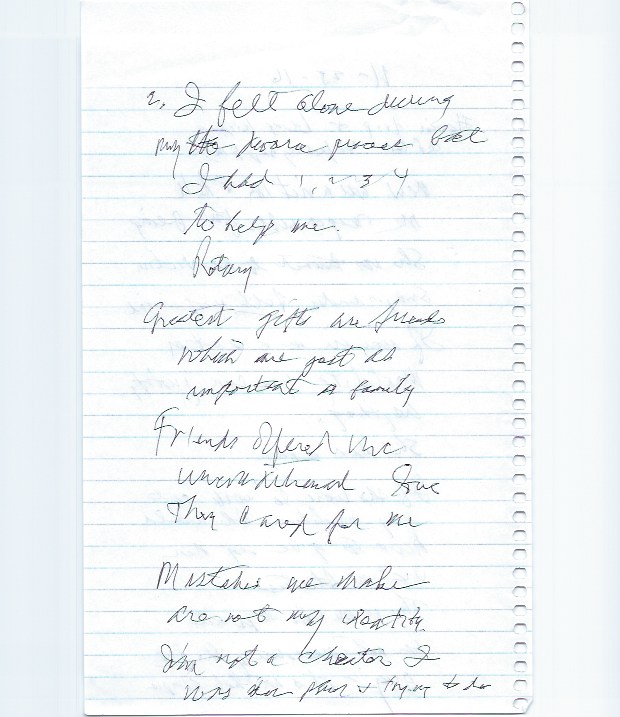 2. I felt alone during
my process but
I had 1, 2 3 4
to help me.
Rotary
Greatest gifts are friends
which are just as
important as family
Friends offered me
unconditional love
They cared for me
Mistakes we make
are not my identity
I'm not a cheater I
was & trying to do